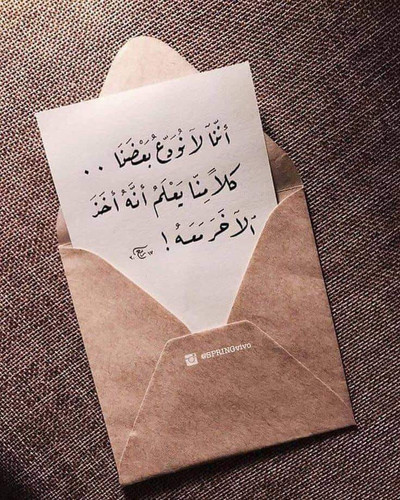 أنّنَا لَا نُوَدّعُ بَعْضَنَا ..
كلاً مِنّا يَعْلَمُ أنّهُ أخَذَ
الآخَرَ مَعَهُ !
@SPRINGvivo